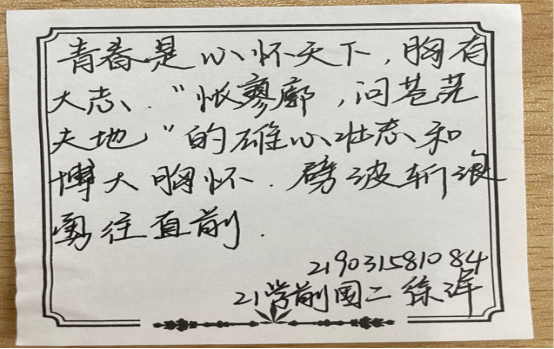 青春是心怀天下，胸有
大志、"怅寥廓，问苍茫
大地"的雄心壮志和
博大胸怀．劈波斩浪
勇往直前．
219031581084
21学前国二 徐